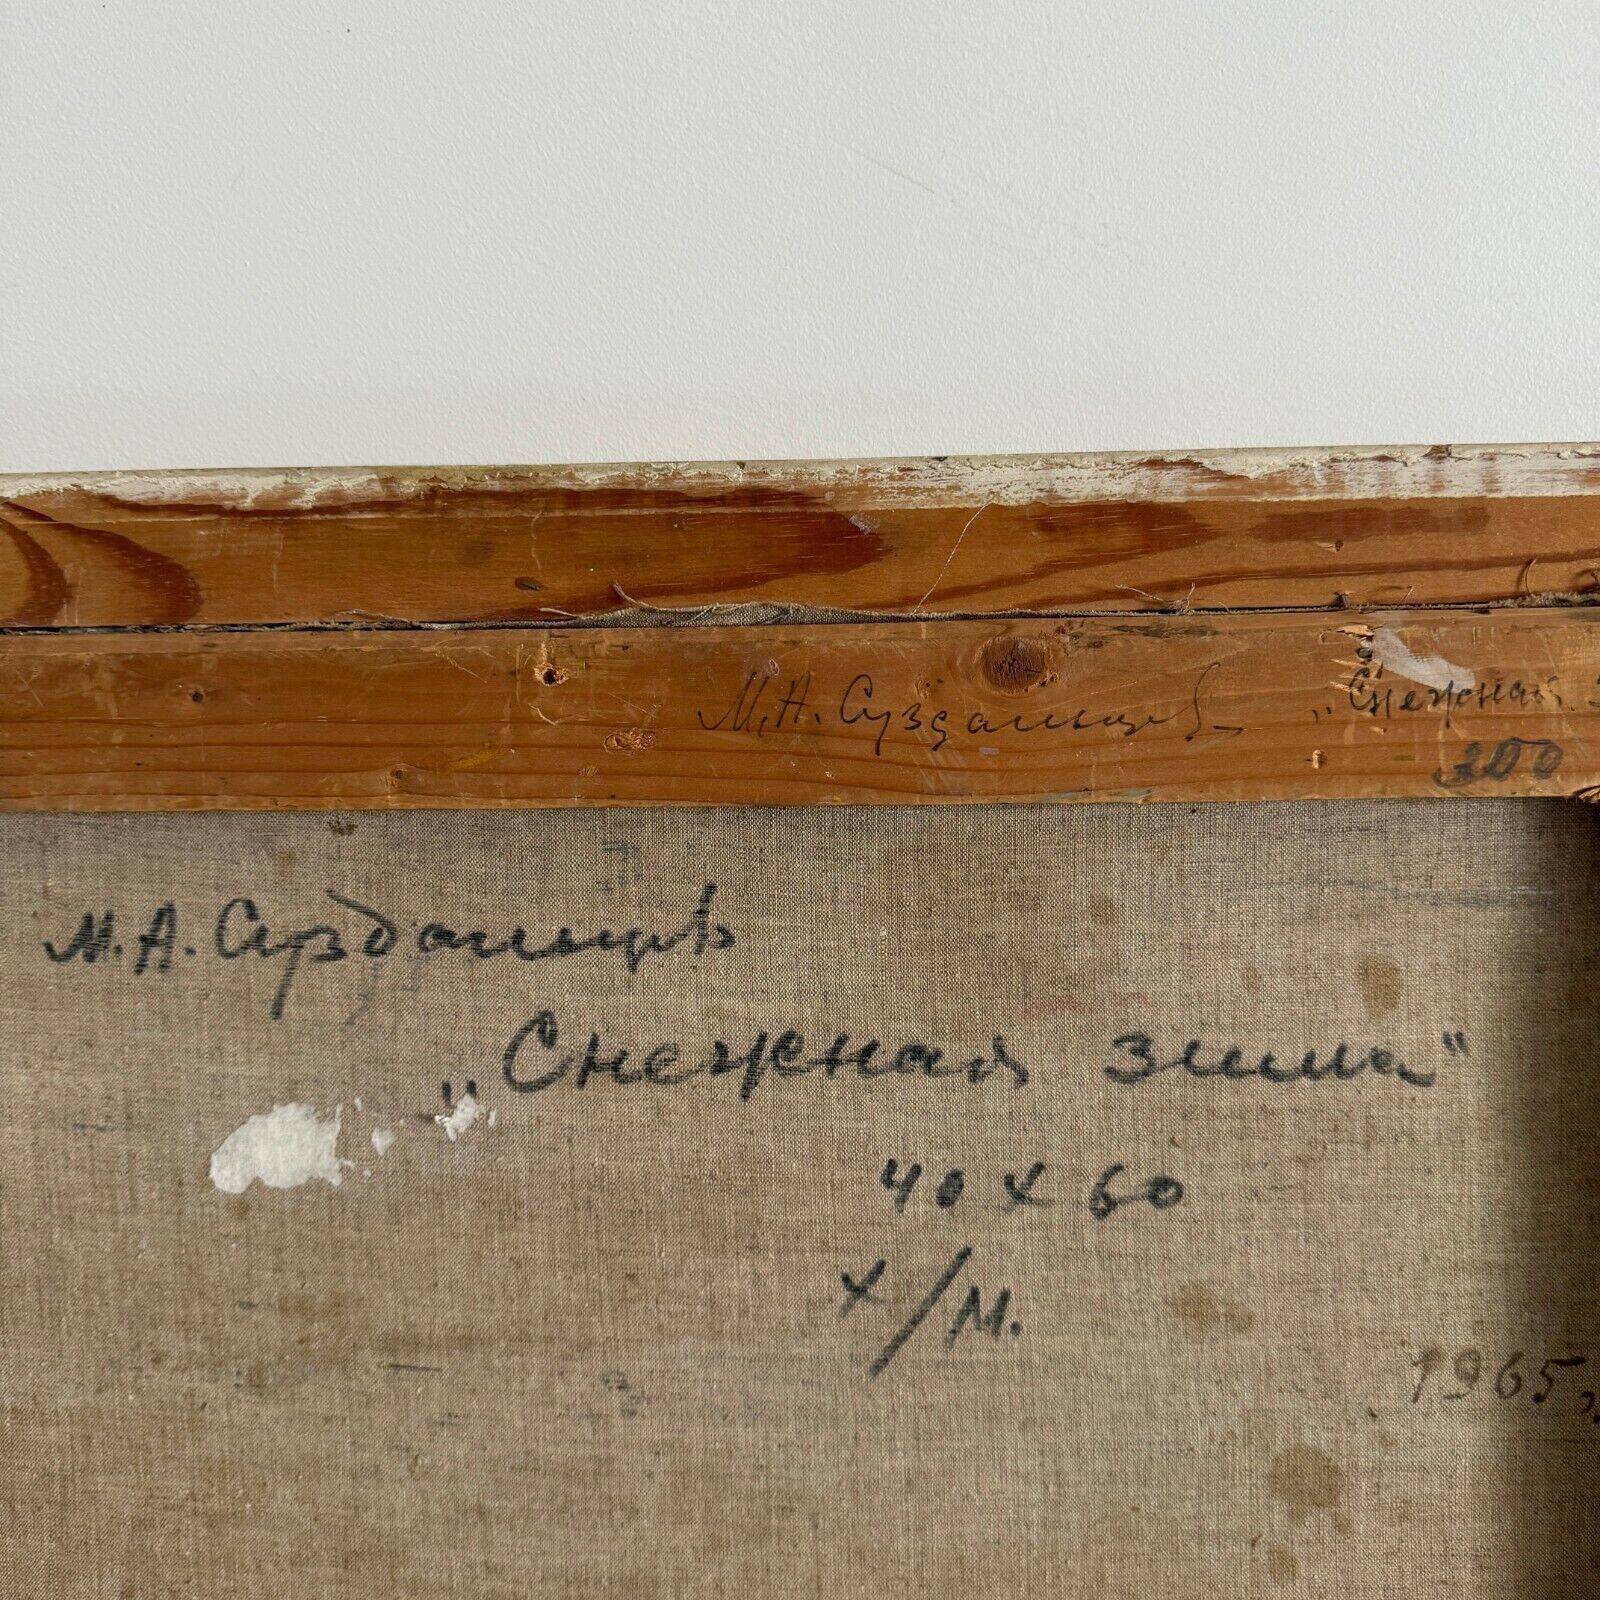 М.А. Суздальцев „Снежная
300
М.А. Суздальцев
„Снежная зима"
40 х 60
х/м.
1965г.